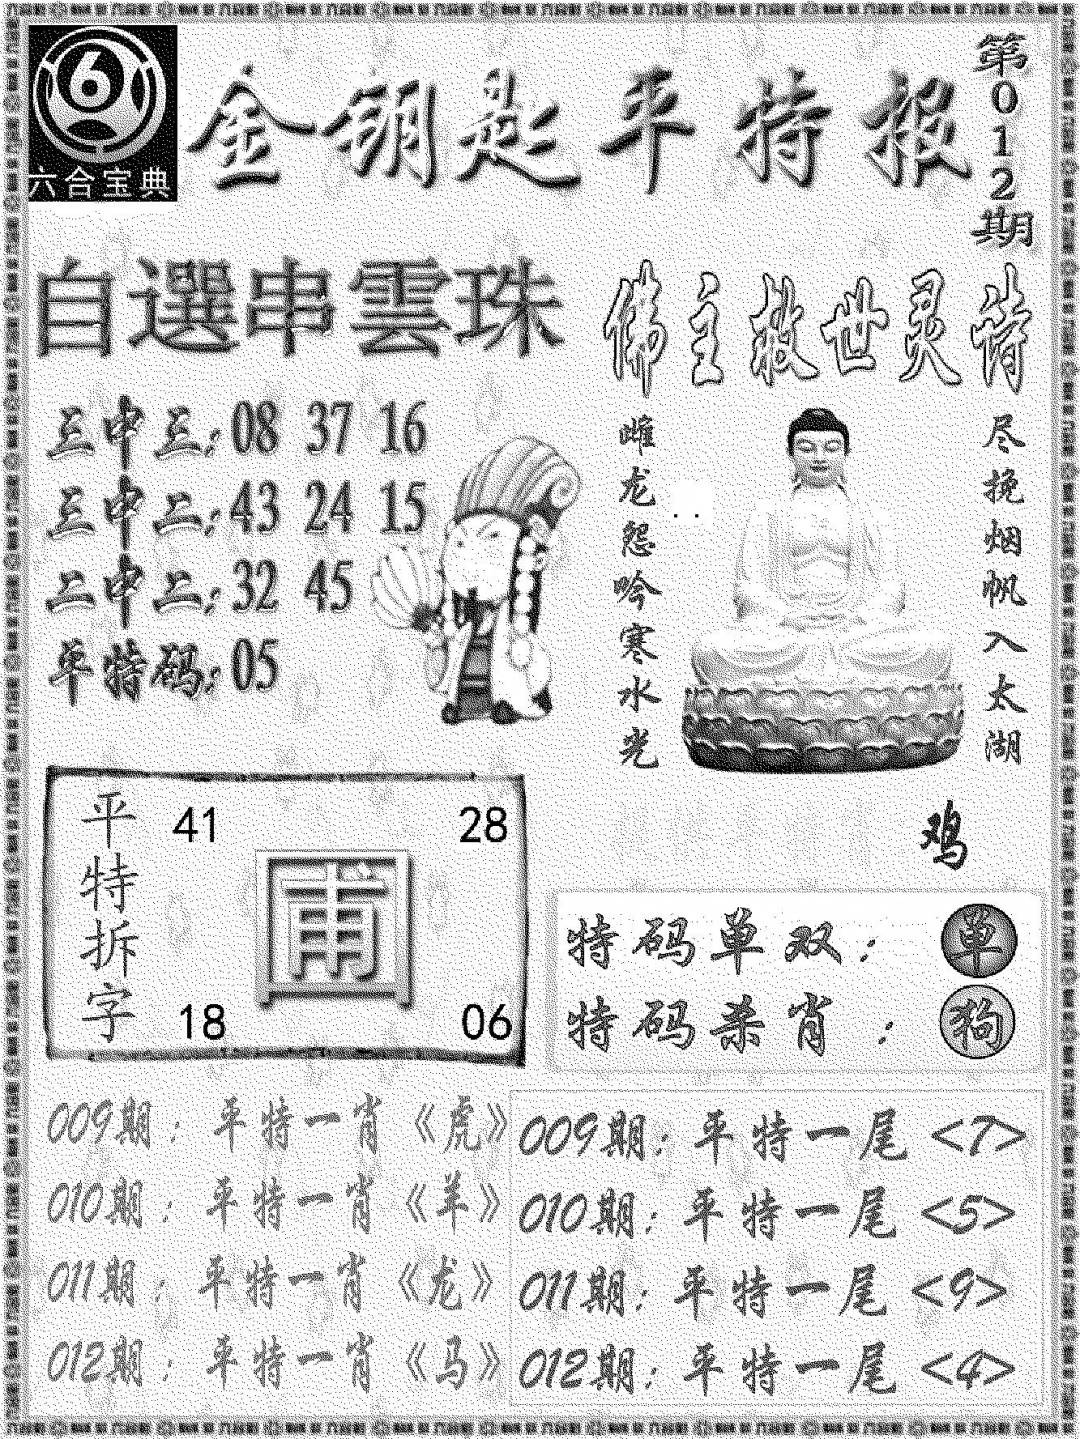 六合宝典
金钥匙平特报
第012期
自選串雲珠
三中三:08 37 16
三中二:43 24 15
二中二:32 45
平特码:05
佛主救世灵诗
雌龙怨吟寒水光
尽挽烟帆入太湖
鸡
平特拆字
41 28
甫
18 06
特码单双:单
特码杀肖:狗
009期:平特一肖《虎》
010期:平特一肖《羊》
011期:平特一肖《龙》
012期:平特一肖《马》
009期:平特一尾<7>
010期:平特一尾<5>
011期:平特一尾<9>
012期:平特一尾<4>